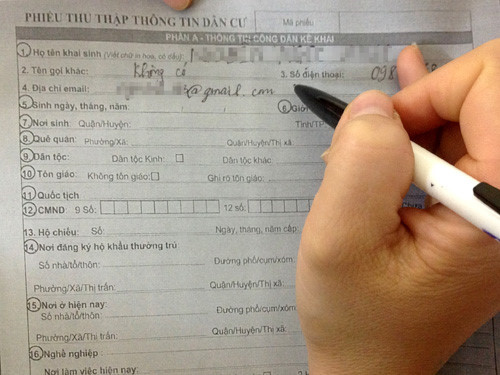 PHIẾU THU THẬP THÔNG TIN DÂN CƯ Mã phiếu
PHẦN A - THÔNG TIN CÔNG DÂN KÊ KHAI
1. Họ tên khai sinh (Viết chữ in hoa, có dấu):
2. Tên gọi khác: Không có 3. Số điện thoại: 098
4. Địa chỉ email: @gmail.com
5. Sinh ngày, tháng, năm: 6. Giới
7. Nơi sinh: Quận/Huyện: Tỉnh/TP:
8. Quê quán: Phường/Xã: Quận/Huyện/Thị xã:
9. Dân tộc: Dân tộc Kinh: Dân tộc khác:
10. Tôn giáo: Không tôn giáo: Ghi rõ tôn giáo:
11. Quốc tịch
12. CMND: 9 Số: 12 số:
13. Hộ chiếu: Số: Ngày, tháng, năm cấp:
14. Nơi đăng ký hộ khẩu thường trú
Số nhà/tổ/thôn: Đường phố/cụm/xóm:
Phường/Xã/Thị trấn: Quận/Huyện/Thị xã:
15. Nơi ở hiện nay:
Số nhà/tổ/thôn: Đường phố/cụm/xóm:
Phường/Xã/Thị trấn: Quận/Huyện/Thị xã:
16. Nghề nghiệp:
Nơi làm việc hiện nay: